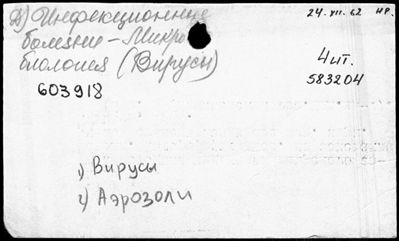 2) Инфекционные
болезни - Микро
биология (Вирусы)
24.VII.62 НР.
4 шт.
583204
603918
1) Вирусы
4) Аэрозоли